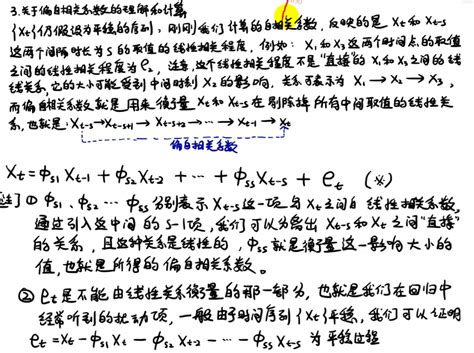 3.关于偏自相关系数的理解和计算
{Xt}仍假设为平稳的序列,刚刚我们计算的自相关系数,反映的是 Xt和Xt-s
这两个间隔时长为s的取值的线性相关程度,例如:X1和X3这两个时间点的取值
之间的线性相关程度为ρ2,注意,这个线性相关程度不是"直接"的X1和X3之间的线
性关系,它的大小可能受到中间时刻X2的影响,关系可表示为 X1→X2→X3,
而偏自相关系数就是用来衡量Xt和Xt-s在剔除掉所有中间取值的线性关
系,也就是:Xt-s→Xt-s+1→Xt-s+2→…→Xt-1→Xt
偏自相关系数
Xt=φs1Xt-1+φs2Xt-2+…+φssXt-s+et (*)
注]①φs1、φs2…φss分别表示Xt-s这一项与Xt之间的线性相关系数,
通过引入这中间的s-1项,我们可以分离出Xt-s和Xt之间"直接"
的关系,且这种关系是线性的,φss就是衡量这一影响大小的
值,也就是所得的偏自相关系数。
②et是不能由线性关系衡量的那一部分,也就是我们在回归中
经常听到的扰动项,一般由于时间序列{Xt}平稳,我们可以证明
et=Xt-φs1Xt-φs2Xt-2-…-φssXt-s 为平稳过程